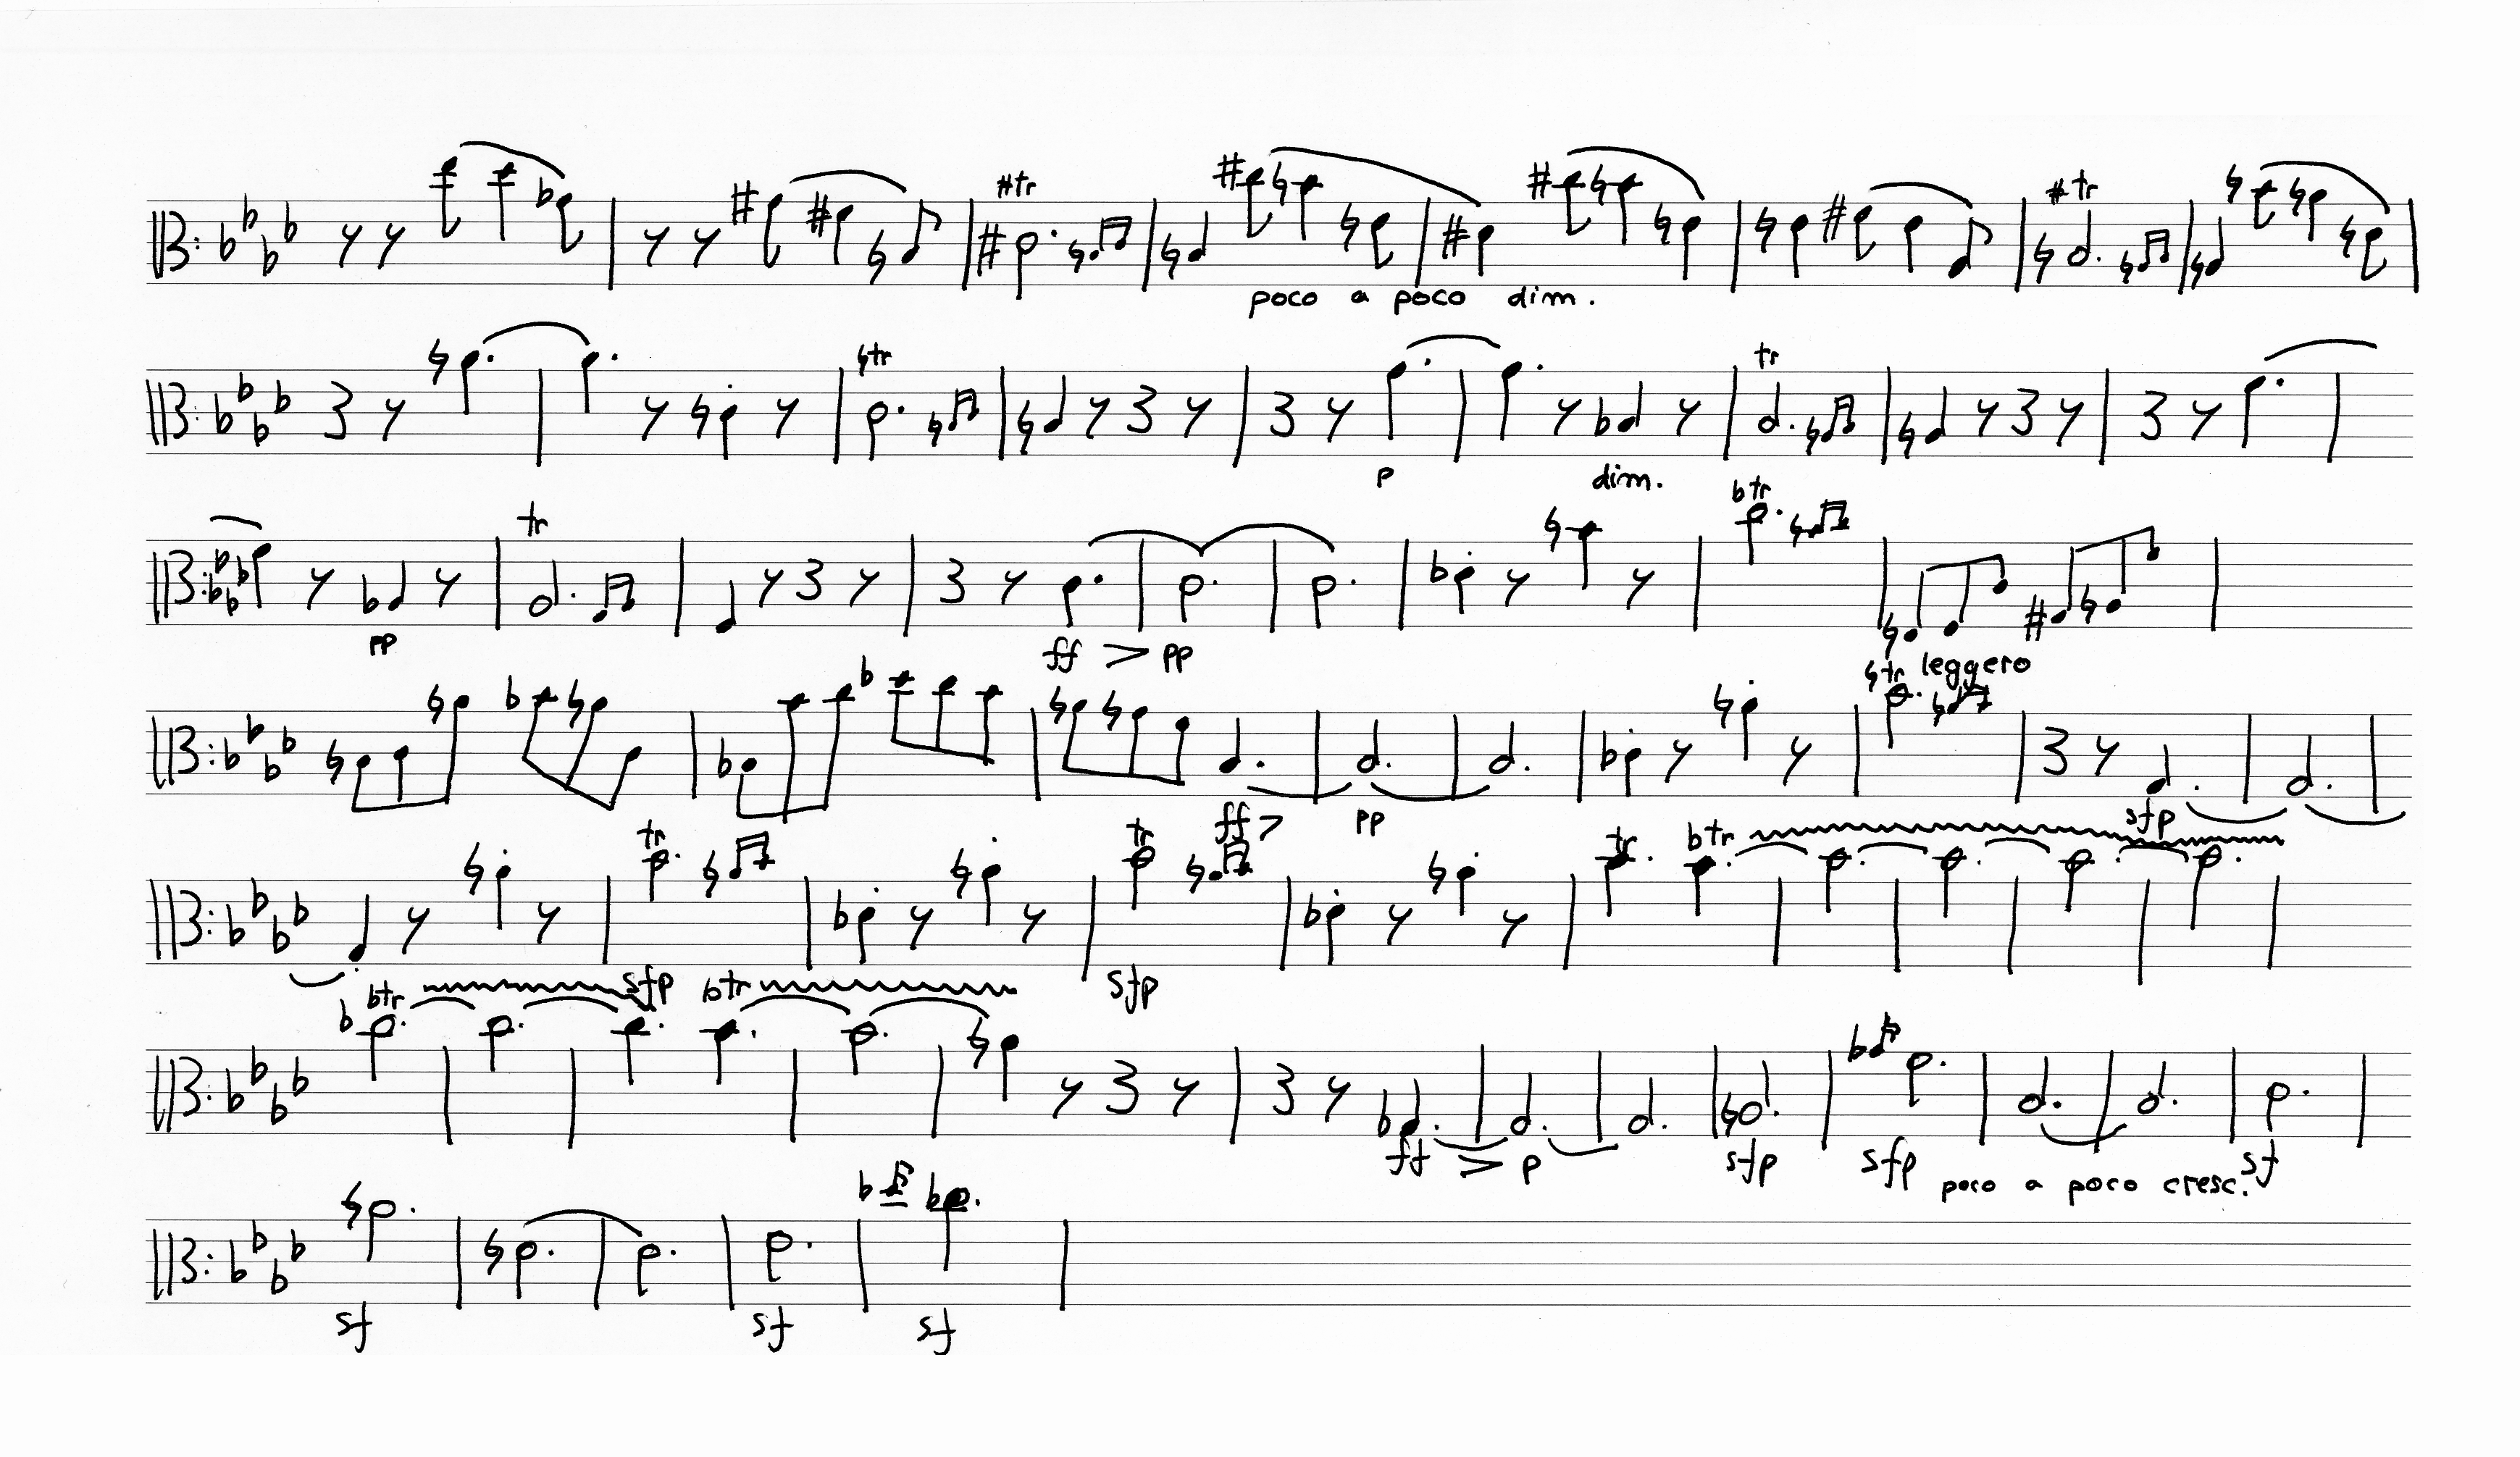 tr
tr
poco a poco dim.
tr
tr
p
dim.
tr
tr
pp
ff pp
leggero
tr
ff pp
sfp
tr
tr
tr
tr
sfp
sfp
tr
tr
ff p
sfp
sfp
poco a poco cresc.
sf
sf
sf
sf